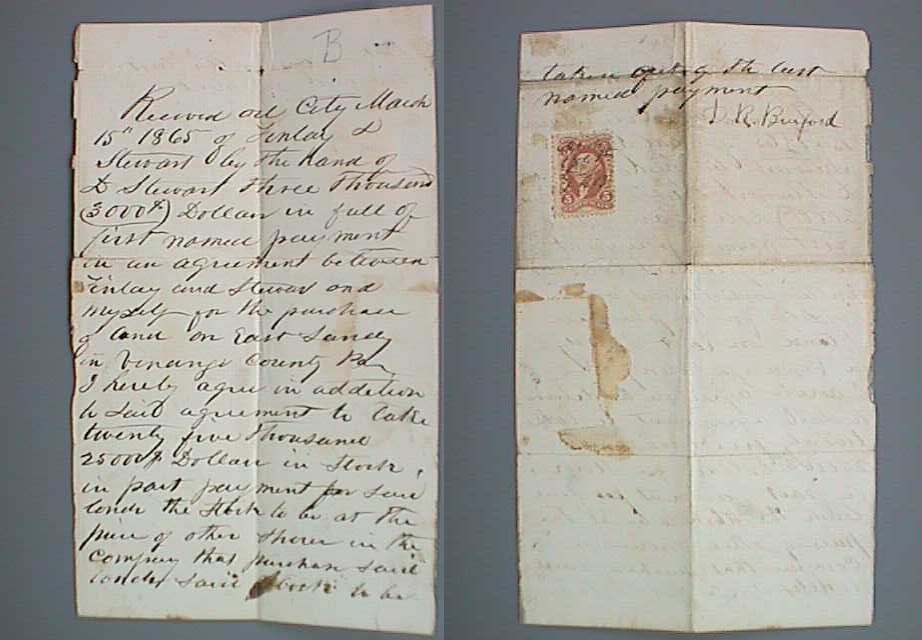 B
Received oil City March
15" 1865 of Finlay &
Stewart by the hand of
D Stewart three thousand
(3000$) Dollars in full of
first named payment
in an agreement between
Finlay and Stewart and
myself for the purchase
of land on East Sandy
in Venango County Pa
I hereby agree in addition
to said agreement to take
twenty five thousand
25000$ Dollars in Stock
in part payment for said
lands the Stock to be at the
price of other shares in the
company that purchase said
lands said Stock to be
taken out of the last
named payment
D. R. Buiford
5 5